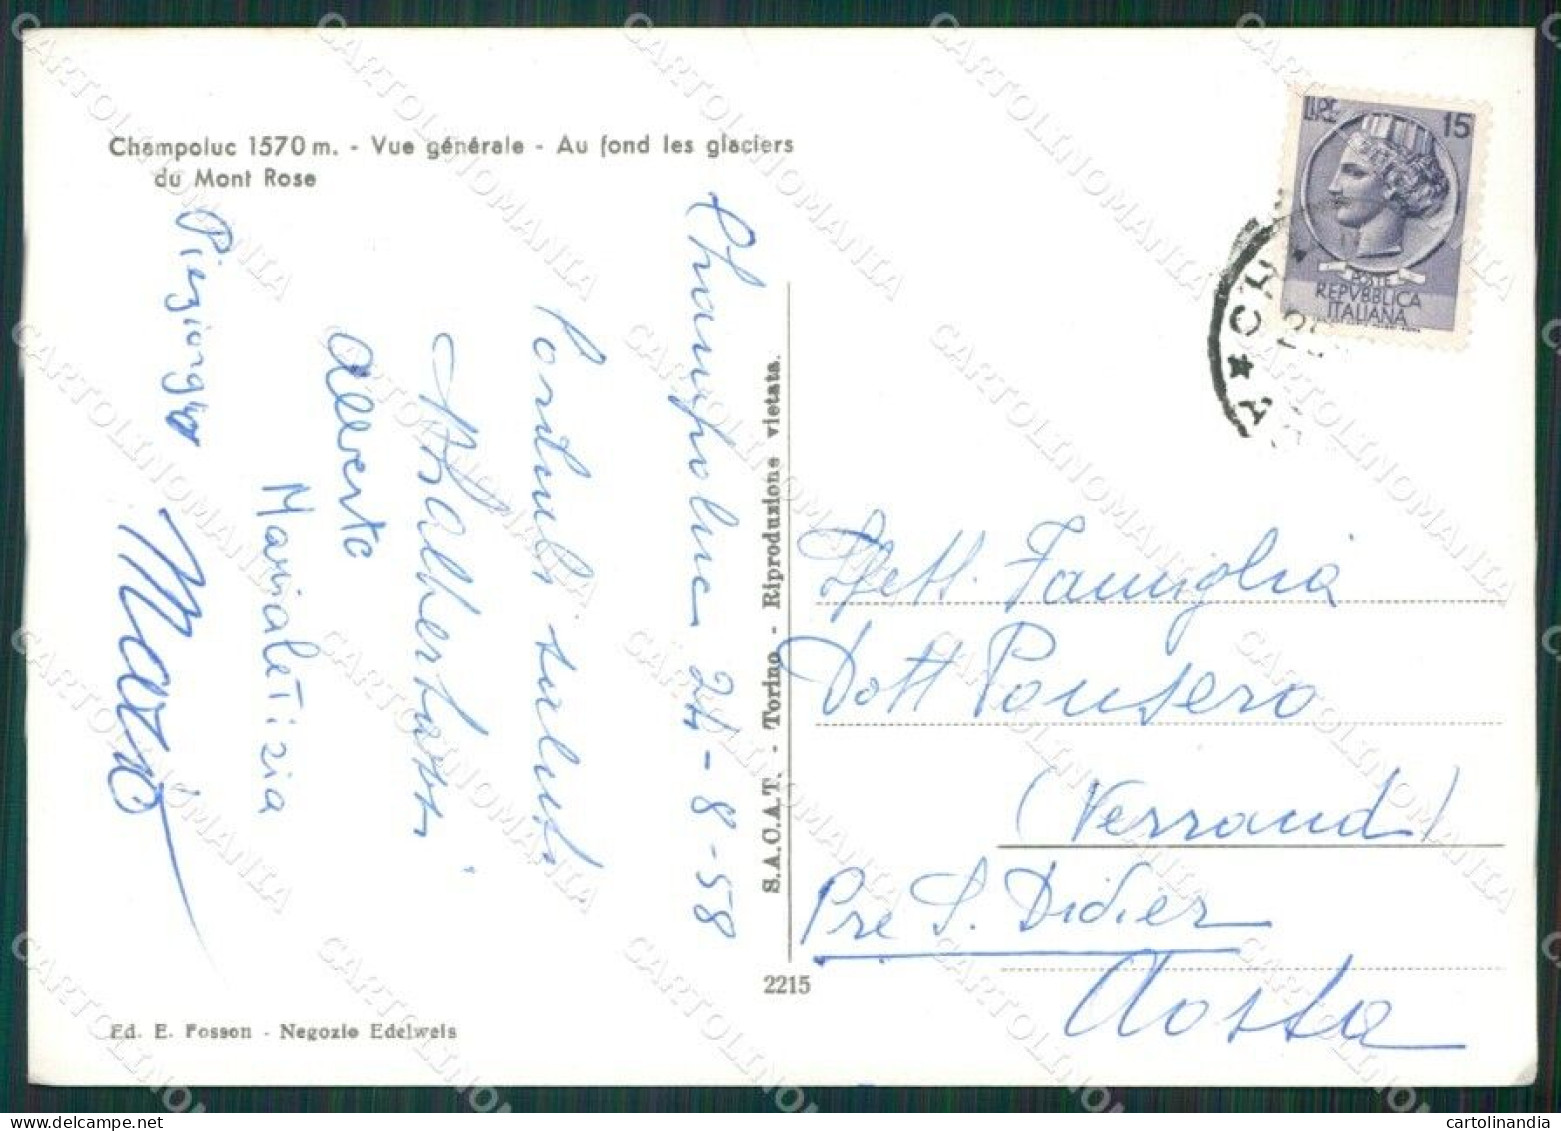 Champoluc 1570 m. - Vue générale - Au fond les glaciers
du Mont Rose
Champoluc 24-8-58
saluti
Alberto
Marialetizia
Piergiorgio
Mario
S.A.C.A.T. - Torino - Riproduzione vietata.
2215
Ed. E. Fosson - Negozio Edelweis
LIRE 15
POSTE
REPVBBLICA
ITALIANA
Famiglia
Dott Ponsero
(Verrand)
Pre S. Didier
Aosta
CARTOLINOMANIA
cartolinandia